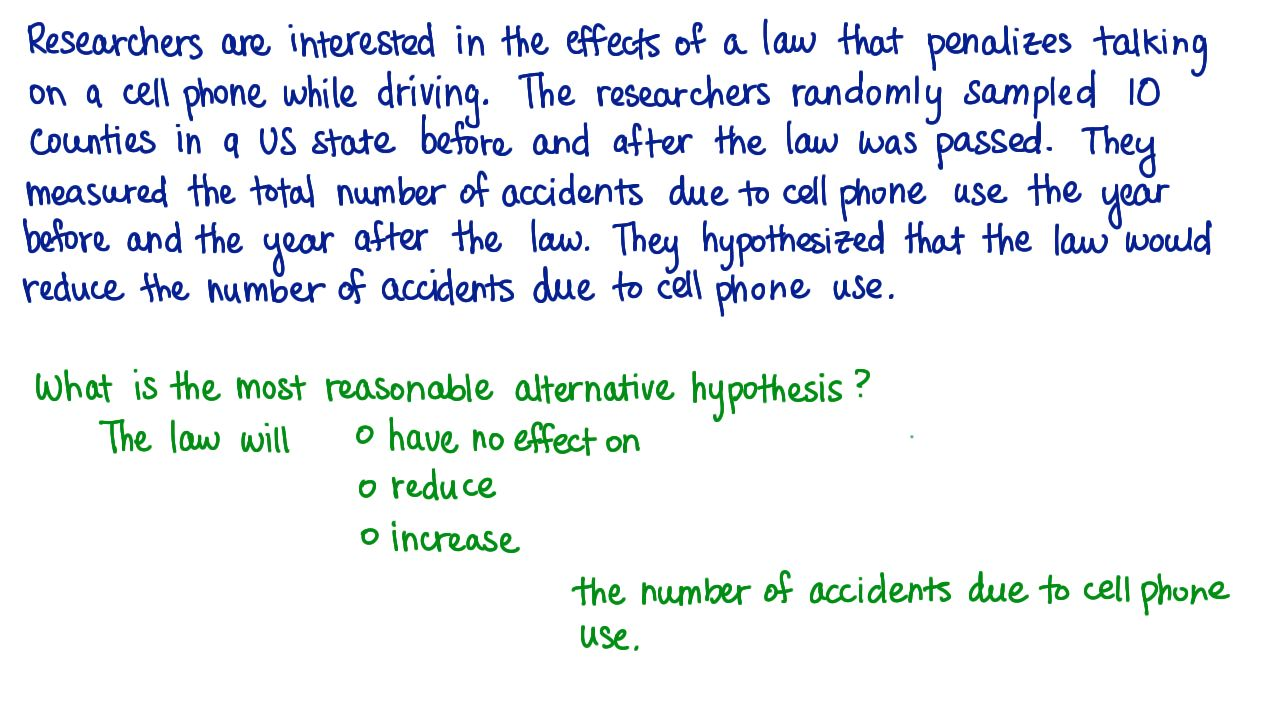 Researchers are interested in the effects of a law that penalizes talking
on a cell phone while driving. The researchers randomly sampled 10
counties in a US state before and after the law was passed. They
measured the total number of accidents due to cell phone use the year
before and the year after the law. They hypothesized that the law would
reduce the number of accidents due to cell phone use.
What is the most reasonable alternative hypothesis?
The law will o have no effect on
o reduce
o increase
the number of accidents due to cell phone
use.